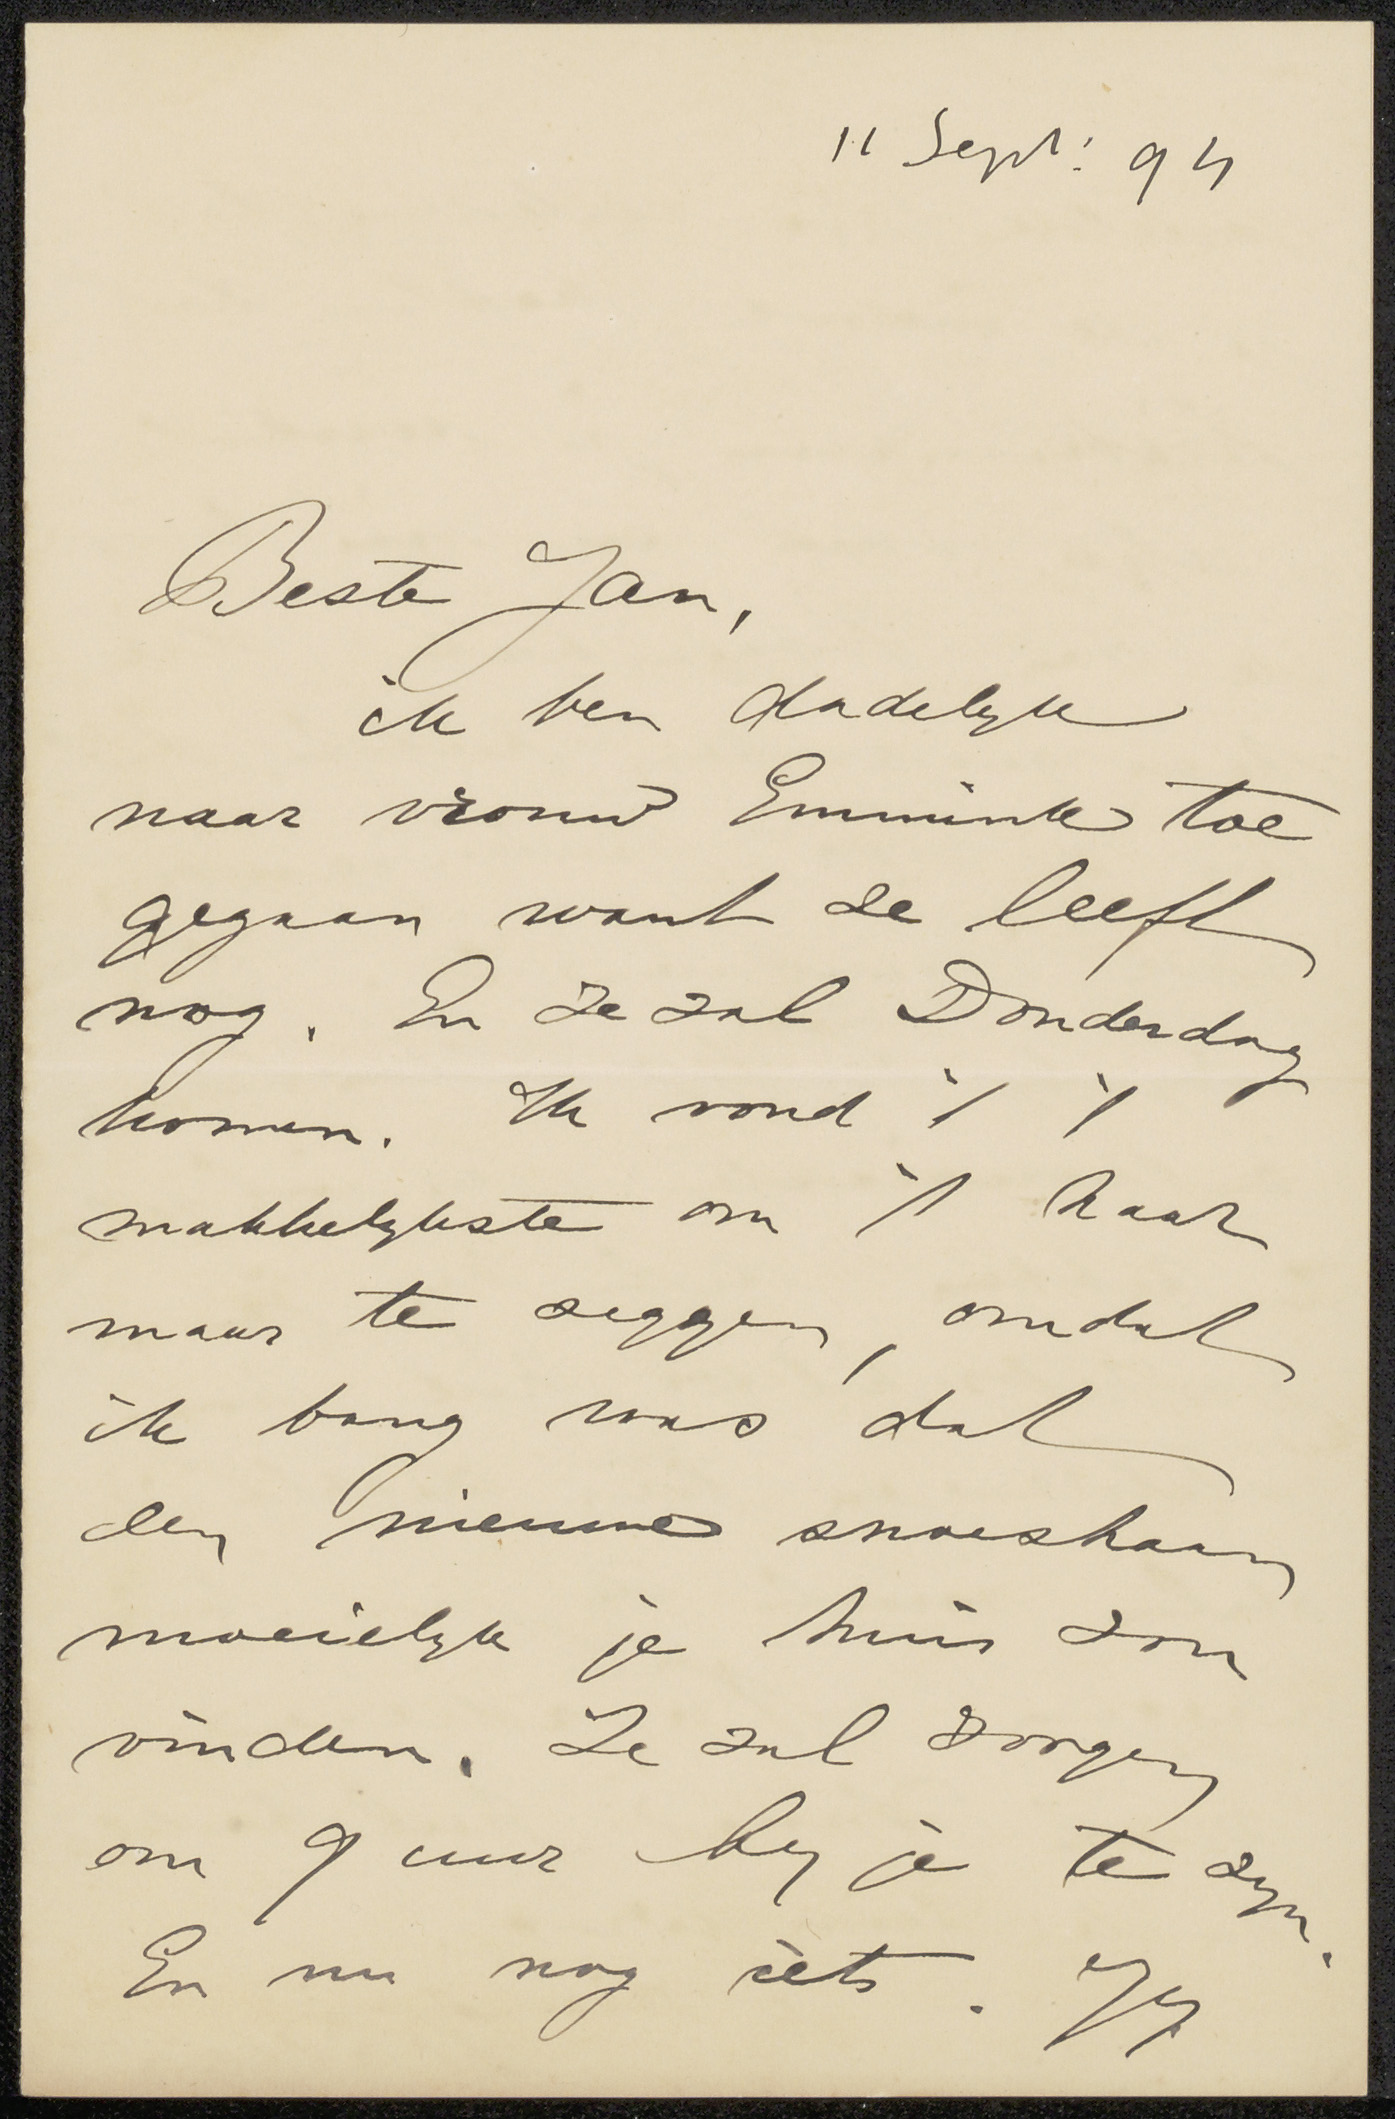 11 Sept: 94
Beste Jan,
ik ben dadelyk
naar vrouw Emmink toe
gegaan want ze leeft
nog. En ze zal Donderdag
komen. Ik vond 't 't
makkelykste om 't haar
maar te zeggen, omdat
ik bang was dat
den nieuwe snoeshaan
moeielyk je huis zou
vinden. Ze zal zorgen
om 9 uur by je te zyn.
En nu nog iets. Jy